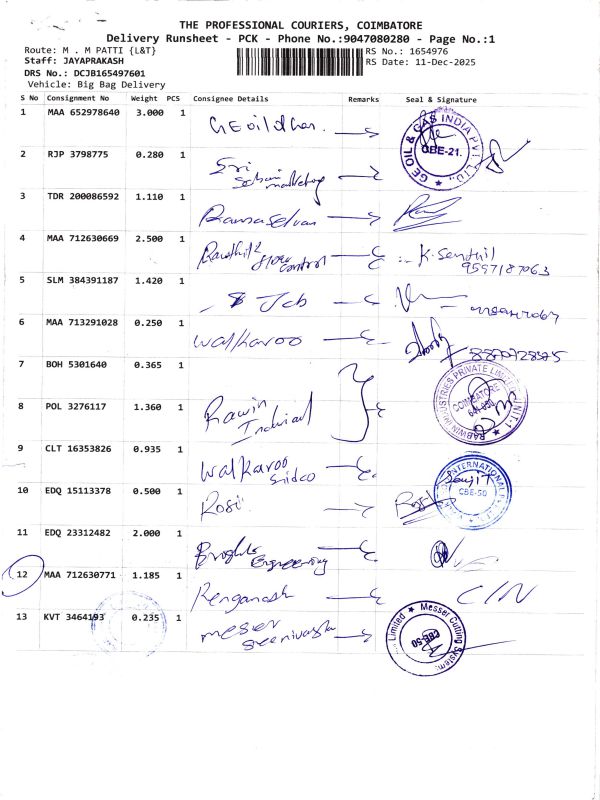 THE PROFESSIONAL COURIERS, COIMBATORE
Delivery Runsheet - PCK - Phone No.:9047080280 - Page No.:1
Route: M . M PATTI {L&T}
RS No.: 1654976
Staff: JAYAPRAKASH
RS Date: 11-Dec-2025
DRS No.: DCJB165497601
Vehicle: Big Bag Delivery
S No Consignment No Weight PCS Consignee Details Remarks Seal & Signature
1 MAA 652978640 3.000 1 GE oil &
GE OIL & GAS INDIA PVT. LTD.,
CBE-21.
2 RJP 3798775 0.280 1 Sri
marketing
3 TDR 200086592 1.110 1
4 MAA 712630669 2.500 1 flow control K. Senthil
9597187063
5 SLM 384391187 1.420 1 Jcb
6 MAA 713291028 0.250 1 Walkaroo
7 BOH 5301640 0.365 1
8 POL 3276117 1.360 1
RABWIN INDUSTRIES PRIVATE LIMITED UNIT-1
COIMBATORE
9 CLT 16353826 0.935 1 Walkaroo
Sidco
INTERNATIONAL
CBE-50
10 EDQ 15113378 0.500 1 Rosi
11 EDQ 23312482 2.000 1 Bright Engineering
12 MAA 712630771 1.185 1 C/N
13 KVT 3464193 0.235 1 messer
Messer Cutting Systems
Limited
CBE-50